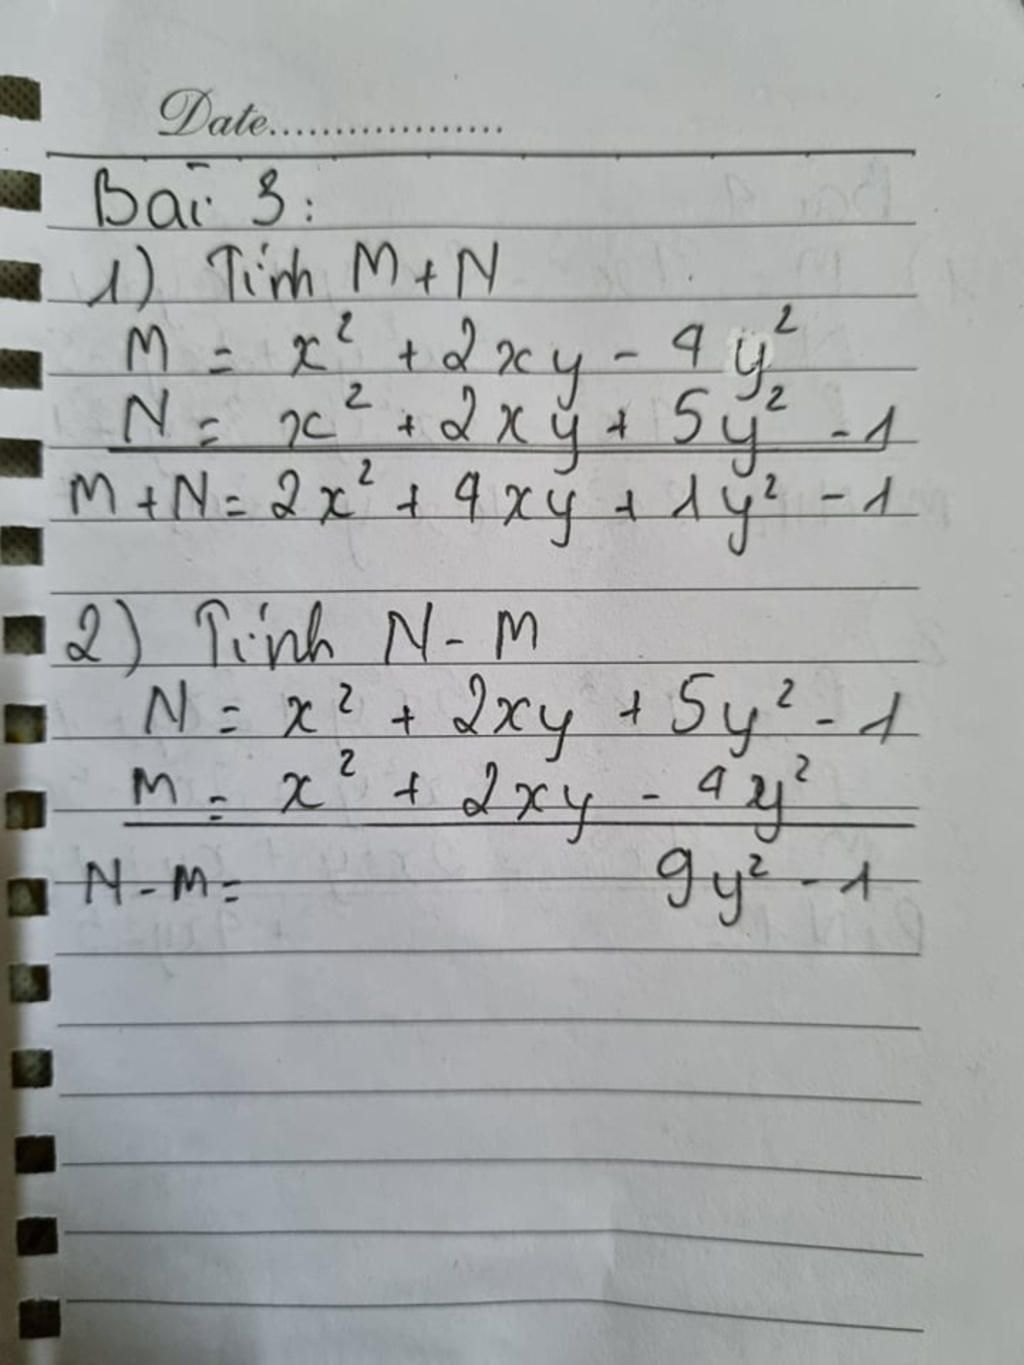 Date..................
Bài 3:
1) Tính M+N
M = x² + 2xy - 4y²
N = x² + 2xy + 5y² - 1
M+N = 2x² + 4xy + 1y² - 1
2) Tính N-M
N = x² + 2xy + 5y² - 1
M = x² + 2xy - 4y²
N-M = 9y² - 1